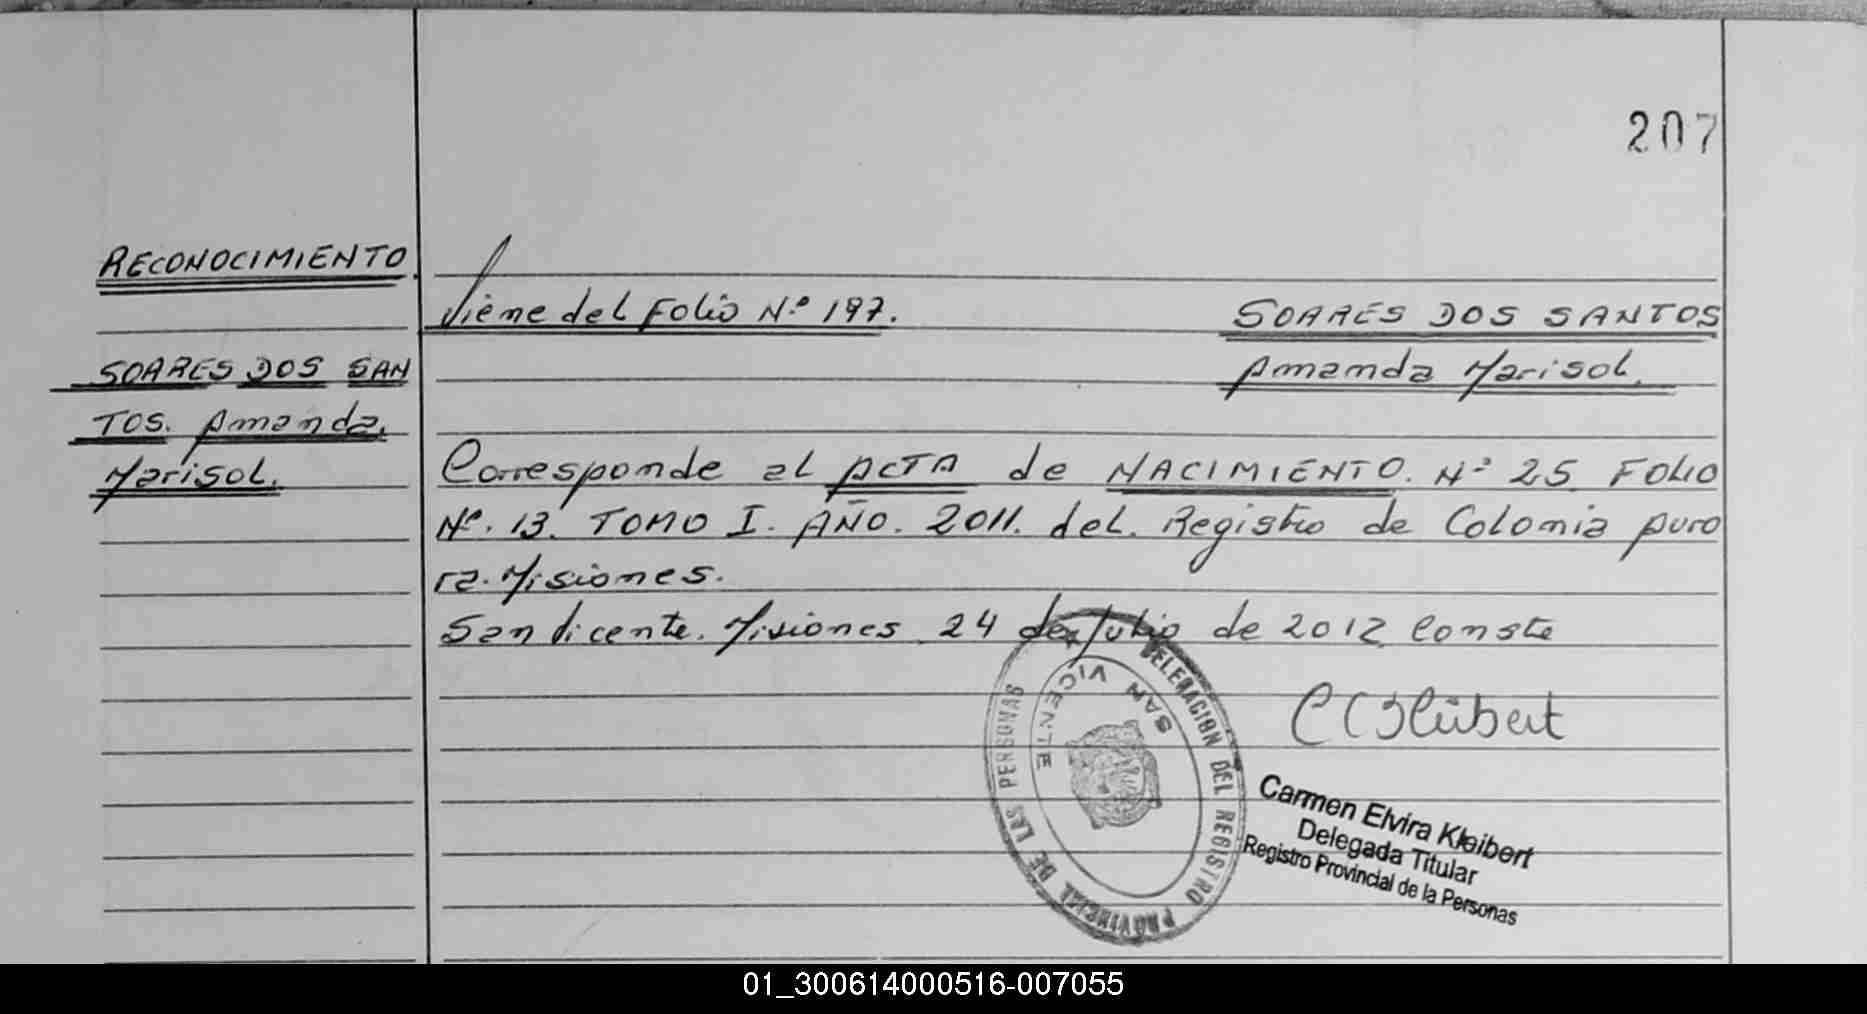 207
RECONOCIMIENTO
SOARES DOS SAN
TOS. Amanda.
Marisol.
Viene del Folio Nº 197.
SOARES DOS SANTOS
Amanda Marisol.
Corresponde al ACTA de NACIMIENTO. Nº 25 FOLIO
Nº. 13. TOMO I. AÑO. 2011. del. Registro de Colonia puro
ra. Misiones.
San Vicente. Misiones 24 de Julio de 2012 Conste
DELEGACION DEL REGISTRO PROVINCIAL DE LAS PERSONAS
SAN VICENTE
Carmen Elvira Kleibert
Delegada Titular
Registro Provincial de la Personas
01_300614000516-007055